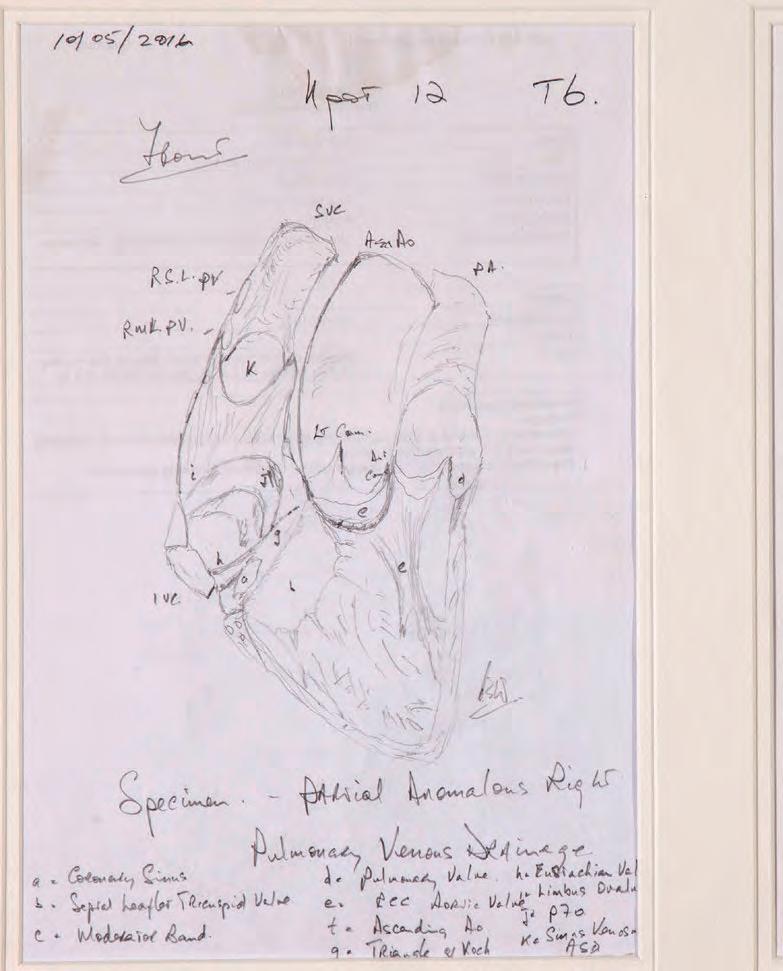 10/05/2016
12 T6.
Front
SVC
Asc Ao
PA.
R.S.L. PV
RML PV.
K
Lt Com.
Ant
Com
i
J
d
e
g
h
a
b
c
IVC
Specimen. - PARtial Anomalous Right
Pulmonary Venous DRAinage
a = Coronary Sinus
b = Septal Leaflet TRicuspid Valve
c = Moderator Band.
d = Pulmonary Valve.
e = Aortic Valve
f = Ascending Ao
g = TRiangle of Koch
h = Eustachian Val
i = Limbus Ovalu
J = PFO
K = Sinus Venos
ASD